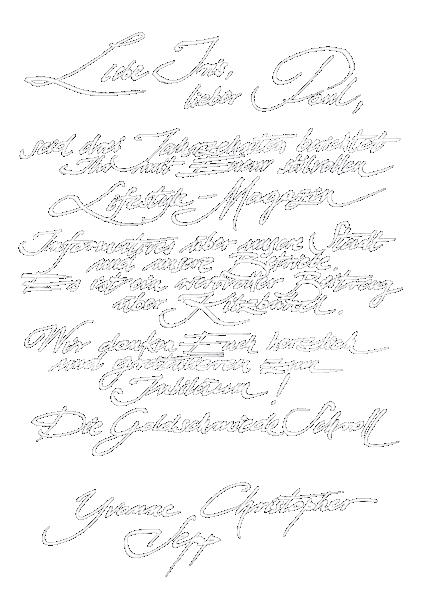 Liebe Iris,
lieber Paul,
seit drei Jahrzehnten berichtet
Ihr mit Eurem stilvollen
Lifestyle-Magazin
Informatives über unsere Stadt
und unsere Region.
Es ist ein wertvoller Beitrag
über
Wir danken Euch herzlich
und gratulieren zum
Jubiläum!
Die Goldschmiede Schnell
Yvonne Christopher
Sepp